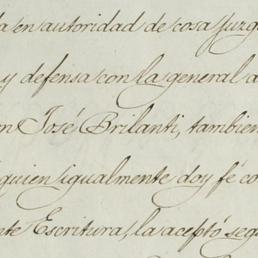 da en autoridad de cosa Juzg
y defensa con la general a
n José Brilanti, tambien
quien igualmente doy fé co
te Escritura, la aceptó seg